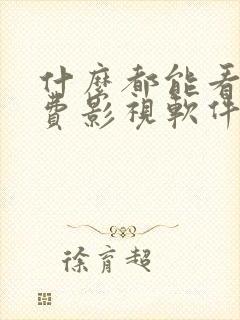 什麼都能看
費影視軟件
徐育超